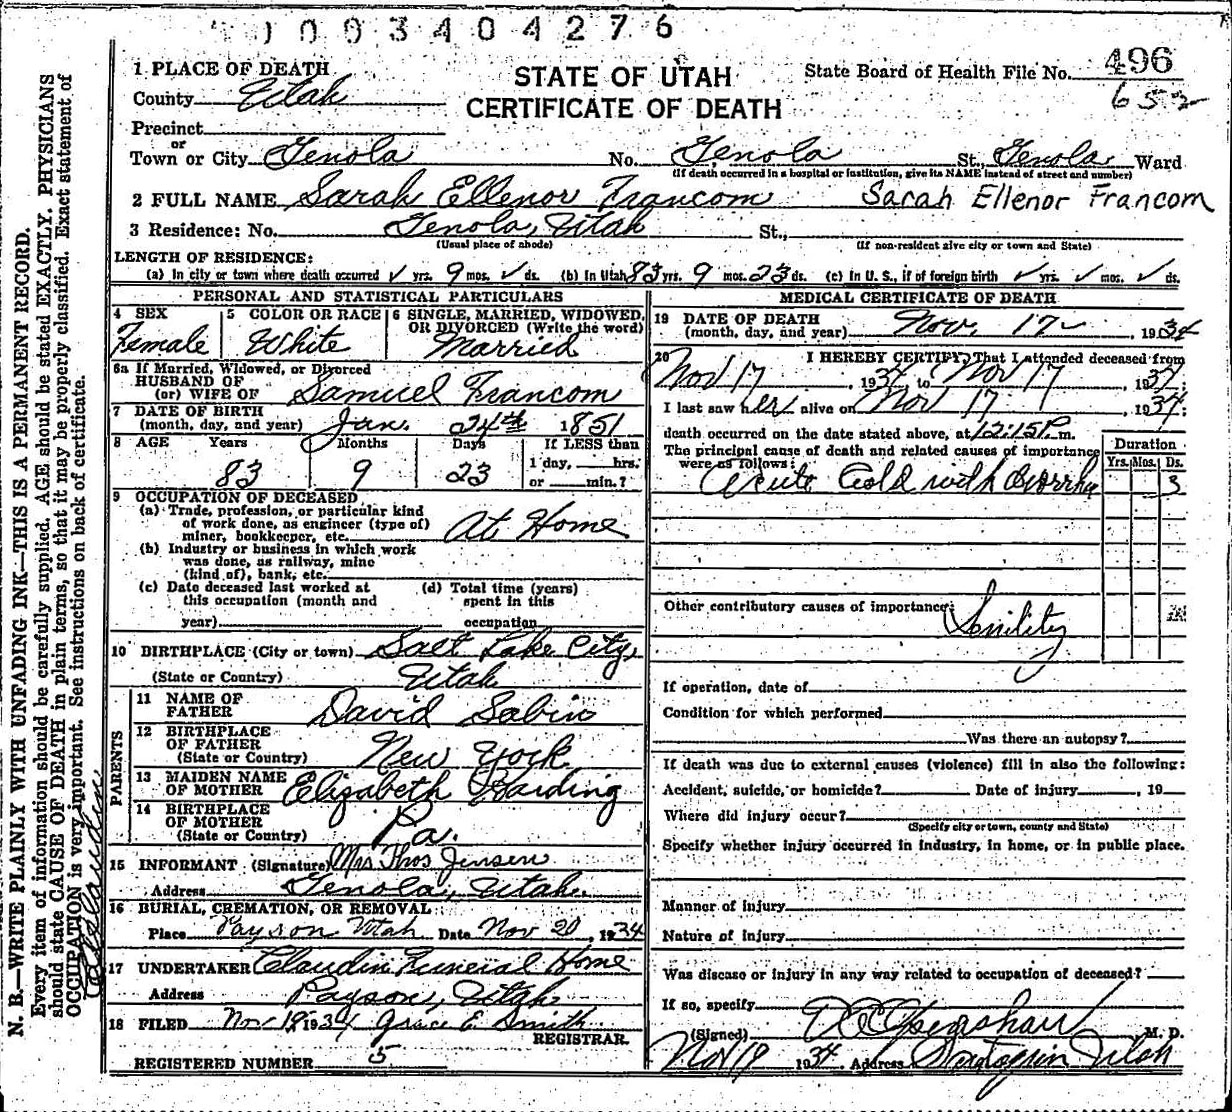 1003404276
STATE OF UTAH
CERTIFICATE OF DEATH
State Board of Health File No. 496
652
1 PLACE OF DEATH
County Utah
Precinct
or
Town or City Genola No. Genola St., Genola Ward
(If death occurred in a hospital or institution, give its NAME instead of street and number)
2 FULL NAME Sarah Ellenor Francom Sarah Ellenor Francom
3 Residence: No. Genola, Utah St.,
(Usual place of abode) (If non-resident give city or town and State)
LENGTH OF RESIDENCE:
(a) In city or town where death occurred ✓ yrs. 9 mos. ✓ ds. (b) In Utah 83 yrs. 9 mos. 23 ds. (c) In U. S., if of foreign birth ✓ yrs. ✓ mos. ✓ ds.
PERSONAL AND STATISTICAL PARTICULARS
4 SEX
Female
5 COLOR OR RACE
White
6 SINGLE, MARRIED, WIDOWED,
OR DIVORCED (Write the word)
Married
6a If Married, Widowed, or Divorced
HUSBAND OF
(or) WIFE OF Samuel Francom
7 DATE OF BIRTH
(month, day, and year) Jan. 24th 1851
8 AGE Years Months Days If LESS than
1 day, hrs.
83 9 23 or min.?
9 OCCUPATION OF DECEASED
(a) Trade, profession, or particular kind
of work done, as engineer (type of)
miner, bookkeeper, etc. At Home
(b) Industry or business in which work
was done, as railway, mine
(kind of), bank, etc.
(c) Date deceased last worked at
this occupation (month and
year)
(d) Total time (years)
spent in this
occupation
10 BIRTHPLACE (City or town) Salt Lake City,
(State or Country) Utah
PARENTS
11 NAME OF
FATHER David Sabin
12 BIRTHPLACE
OF FATHER
(State or Country) New York
13 MAIDEN NAME
OF MOTHER Elizabeth Harding
14 BIRTHPLACE
OF MOTHER
(State or Country) Pa.
15 INFORMANT (Signature) Mrs Thos Jensen
Address Genola, Utah.
16 BURIAL, CREMATION, OR REMOVAL
Place Payson Utah Date Nov 20, 1934
17 UNDERTAKER Claudin Funeral Home
Address Payson, Utah
18 FILED Nov 19, 1934 Grace E Smith
REGISTRAR.
REGISTERED NUMBER 5
MEDICAL CERTIFICATE OF DEATH
19 DATE OF DEATH
(month, day, and year) Nov. 17, 1934
20 I HEREBY CERTIFY, That I attended deceased from
Nov 17, 1934 to Nov 17, 1934;
I last saw her alive on Nov 17, 1934;
death occurred on the date stated above, at 12:15 P. m.
The principal cause of death and related causes of importance
were as follows:
Duration
Yrs. Mos. Ds.
Acute Cold with 3
Other contributory causes of importance:
Senility
If operation, date of
Condition for which performed
Was there an autopsy?
If death was due to external causes (violence) fill in also the following:
Accident, suicide, or homicide? Date of injury , 19
Where did injury occur?
(Specify city or town, county and State)
Specify whether injury occurred in industry, in home, or in public place.
Manner of injury
Nature of injury
Was disease or injury in any way related to occupation of deceased?
If so, specify
(Signed) M. D.
Nov 19 1934. Address Santaquin Utah
N. B.—WRITE PLAINLY WITH UNFADING INK—THIS IS A PERMANENT RECORD.
Every item of information should be carefully supplied. AGE should be stated EXACTLY. PHYSICIANS
should state CAUSE OF DEATH in plain terms, so that it may be properly classified. Exact statement of
OCCUPATION is very important. See instructions on back of certificate.